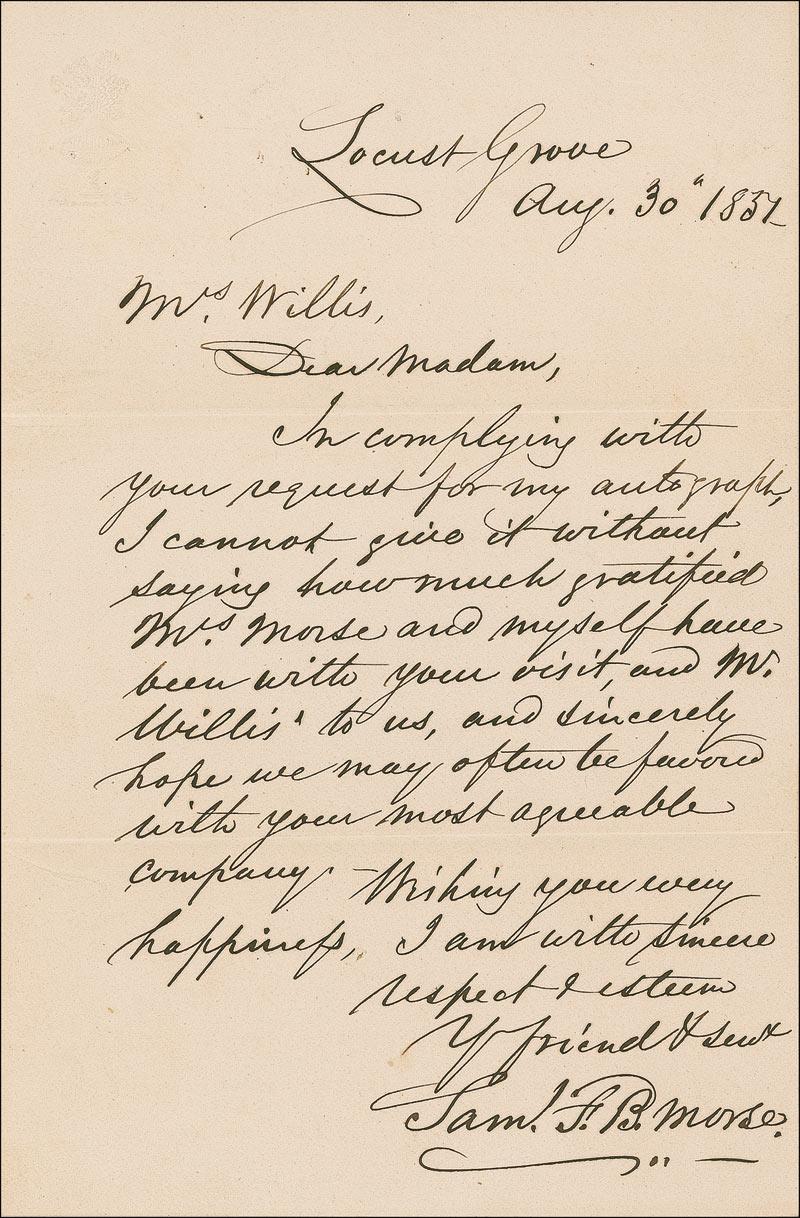 Locust Grove
Aug. 30" 1851
Mrs. Willis,
Dear Madam,
In complying with
your request for my autograph,
I cannot give it without
saying how much gratified
Mrs. Morse and myself have
been with your visit, and Mr.
Willis' to us, and sincerely
hope we may often be favored
with your most agreeable
company. - Wishing you every
happineſs, I am with sincere
respect & esteem
Yr friend & servt
Saml. F. B. Morse.